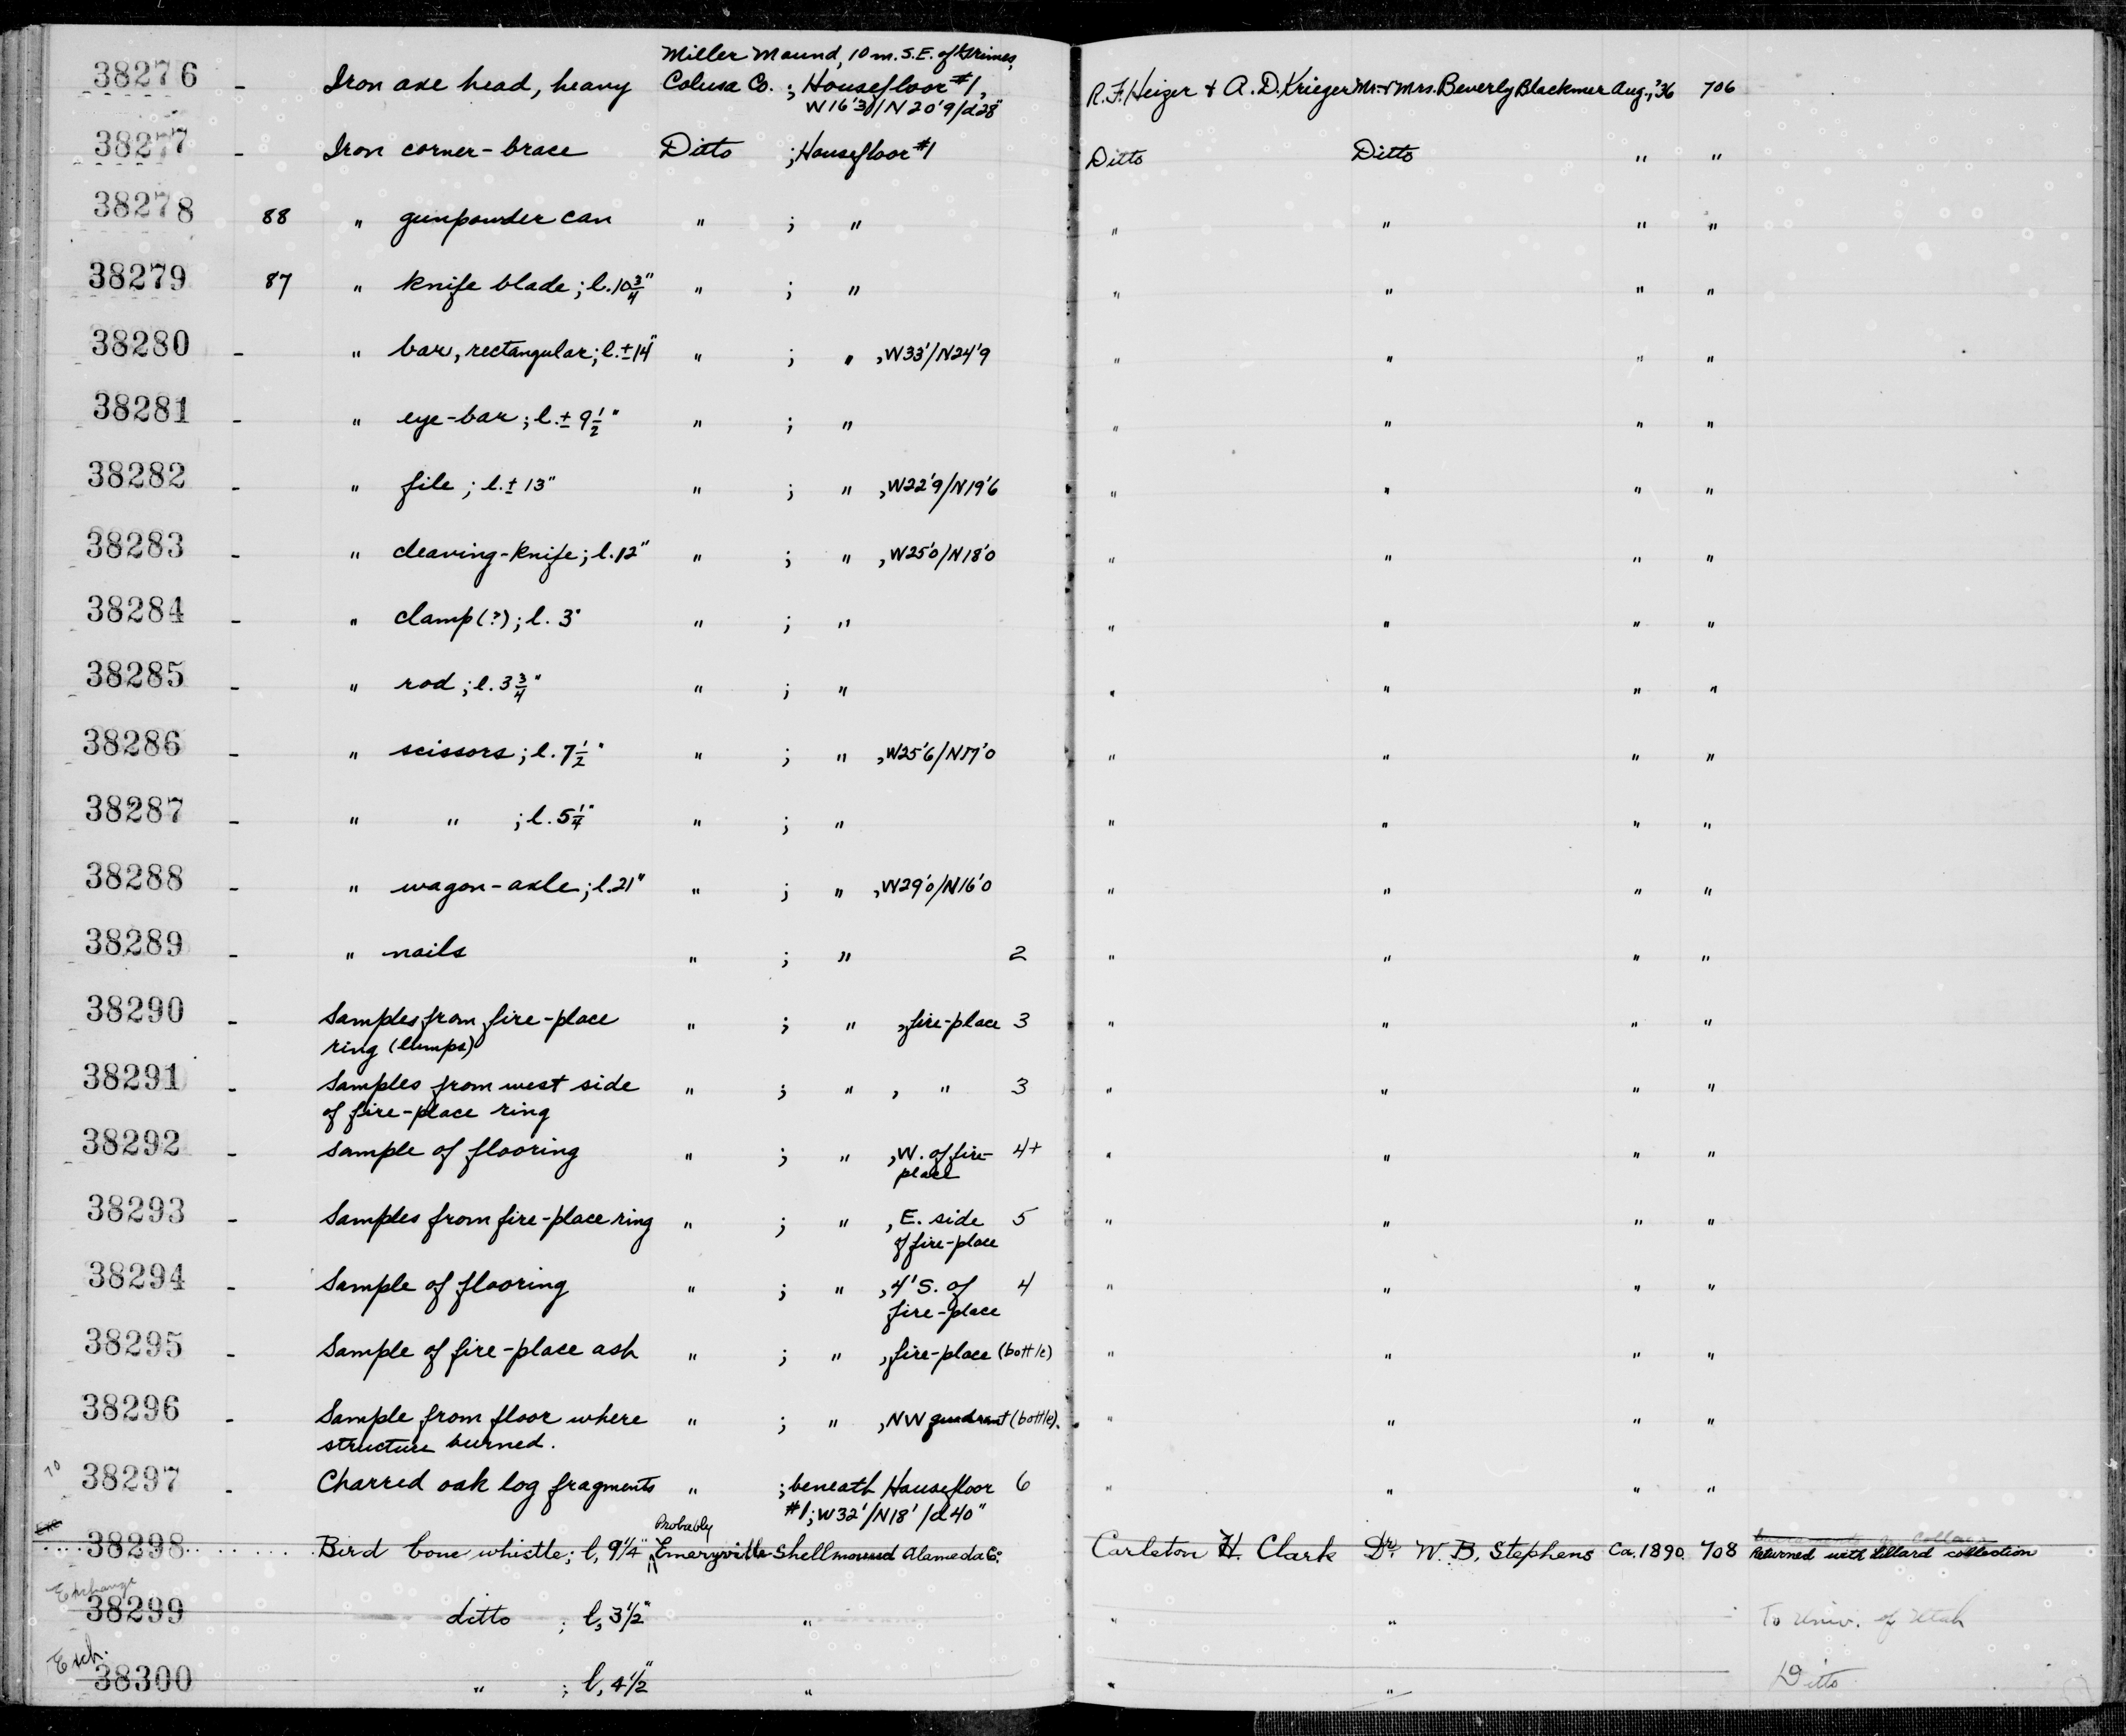 Miller Mound, 10 m. S.E. of Grimes,
38276 - Iron axe head, heavy Colusa Co. ; Housefloor #1, R.F. Heizer + A.D. Krieger Mr. + Mrs. Beverly Blackmer Aug., '36 706
W16'3/N20'9/d28"
38277 - Iron corner-brace Ditto ; Housefloor #1 Ditto Ditto " "
38278 88 " gunpowder can " ; " " " " "
38279 87 " knife blade ; l. 10 3/4" " ; " " " " "
38280 - " bar, rectangular ; l. ± 14" " ; " , W33'/N24'9 " " " "
38281 - " eye-bar ; l. ± 9 1/2" " ; " " " " "
38282 - " file ; l. ± 13" " ; " , W22'9/N19'6 " " " "
38283 - " cleaving-knife ; l. 12" " ; " , W25'0/N18'0 " " " "
38284 - " clamp (?) ; l. 3" " ; " " " " "
38285 - " rod ; l. 3 3/4" " ; " " " " "
38286 - " scissors ; l. 7 1/2" " ; " , W25'6/N17'0 " " " "
38287 - " " ; l. 5 1/4" " ; " " " " "
38288 - " wagon-axle ; l. 21" " ; " , W29'0/N16'0 " " " "
38289 - " nails " ; " 2 " " " "
38290 - Samples from fire-place " ; " , fire-place 3 " " " "
ring (lumps)
38291 - Samples from west side " ; " , " 3 " " " "
of fire-place ring
38292 - Sample of flooring " ; " , W. of fire- 4+ " " " "
place
38293 - Samples from fire-place ring " ; " , E. side 5 " " " "
of fire-place
38294 - Sample of flooring " ; " , 4' S. of 4 " " " "
fire-place
38295 - Sample of fire-place ash " ; " , fire-place (bottle) " " " "
38296 - Sample from floor where " ; " , NW quadrant (bottle). " " " "
structure burned.
70
38297 - Charred oak log fragments " ; beneath Housefloor 6 " " " "
#1; W32'/N18'/d40"
Probably
Exc
38298 Bird bone whistle; l, 9 1/4" Emeryville Shellmound Alameda Co. Carleton H. Clark Dr. W. B. Stephens Ca. 1890 708 Returned with Lillard collection
Exchange
38299 ditto ; l, 3 1/2" " " " To Univ. of Utah
Exch.
38300 " ; l, 4 1/2" " " " Ditto